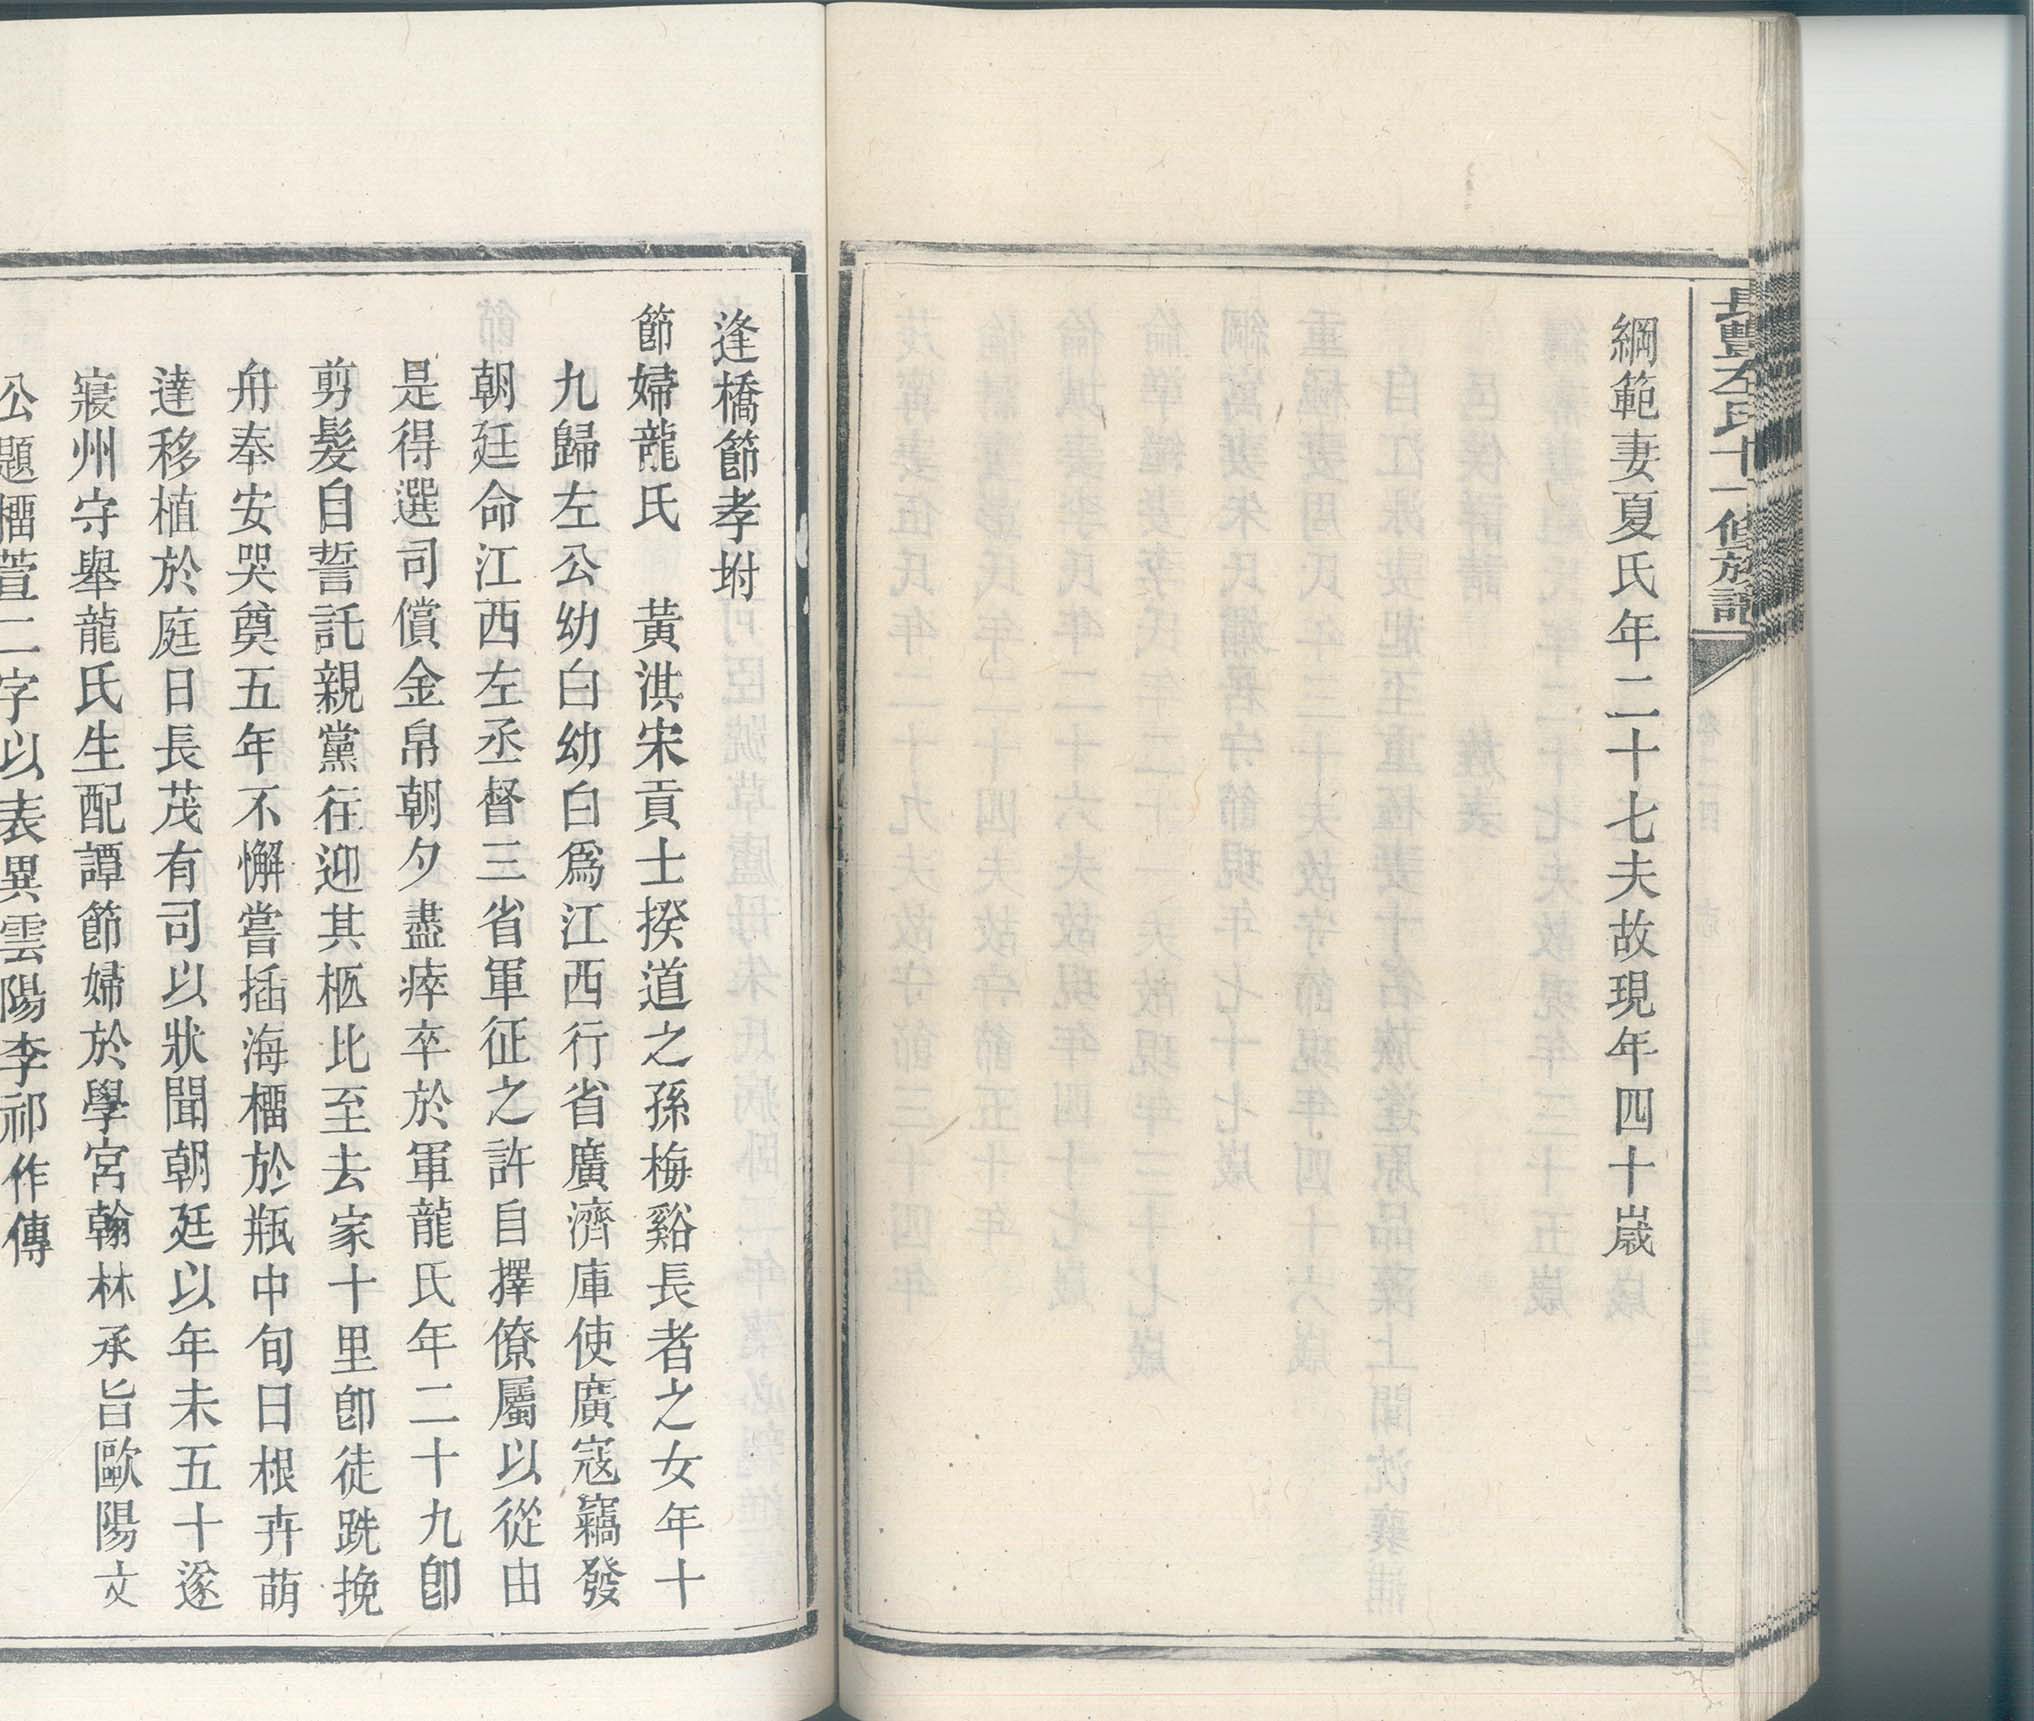 長豐左氏十一修族譜
綱範妻夏氏年二十七夫故現年四十歲
逢橋節孝坿
節婦龍氏　黃淇宋貢士揆道之孫梅谿長者之女年十
九歸左公幼白幼白爲江西行省廣濟庫使廣寇竊發
朝廷命江西左丞督三省軍征之許自擇僚屬以從由
是得選司償金帛朝夕盡瘁卒於軍龍氏年二十九卽
剪髮自誓託親黨往迎其柩比至去家十里卽徒跣挽
舟奉安哭奠五年不懈嘗插海榴於瓶中旬日根卉萌
達移植於庭日長茂有司以狀聞朝廷以年未五十遂
寢州守舉龍氏生配譚節婦於學宮翰林承旨歐陽文
公題橊萱二字以表異雲陽李祁作傳